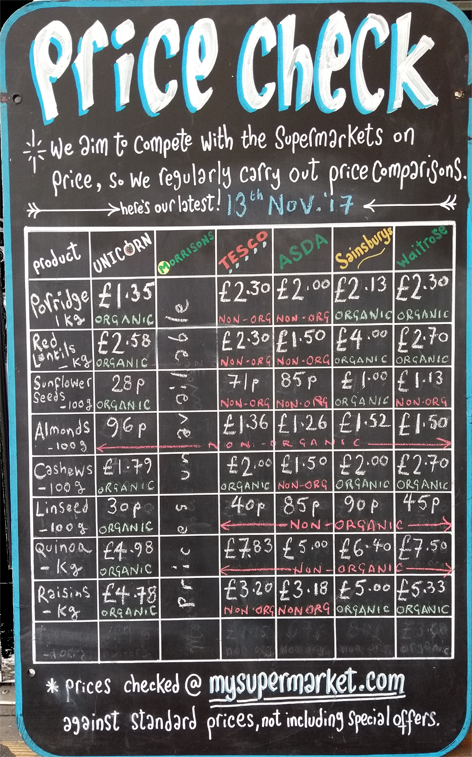 Price Check
We aim to compete with the Supermarkets on
Price, so we regularly carry out price comparisons.
here's our latest! 13th Nov.'17
product UNICORN MORRISONS TESCO ASDA Sainsburys Waitrose
Porridge £1.35 £2.30 £2.00 £2.13 £2.30
1 kg ORGANIC NON-ORG NON-ORG ORGANIC ORGANIC
Red £2.58 £2.30 £1.50 £4.00 £2.70
Lentils - kg ORGANIC NON-ORG NON-ORG ORGANIC ORGANIC
Sunflower 28p 71p 85p £1.00 £1.13
Seeds -100g ORGANIC NON-ORG NON-ORG ORGANIC NON-ORG
Almonds 96p £1.36 £1.26 £1.52 £1.50
-100g NON-ORGANIC
Cashews £1.79 £2.00 £1.50 £2.00 £2.70
-100g ORGANIC ORGANIC NON-ORG ORGANIC ORGANIC
Linseed 30p 40p 85p 90p 45p
-100g ORGANIC NON-ORGANIC
Quinoa £4.98 £7.83 £5.00 £6.40 £7.50
- kg ORGANIC NON-ORGANIC
Raisins £4.78 £3.20 £3.18 £5.00 £5.33
- kg ORGANIC NON-ORG NON ORG ORGANIC ORGANIC
Prices unavailable
* prices checked @ mysupermarket.com
against standard prices, not including special offers.